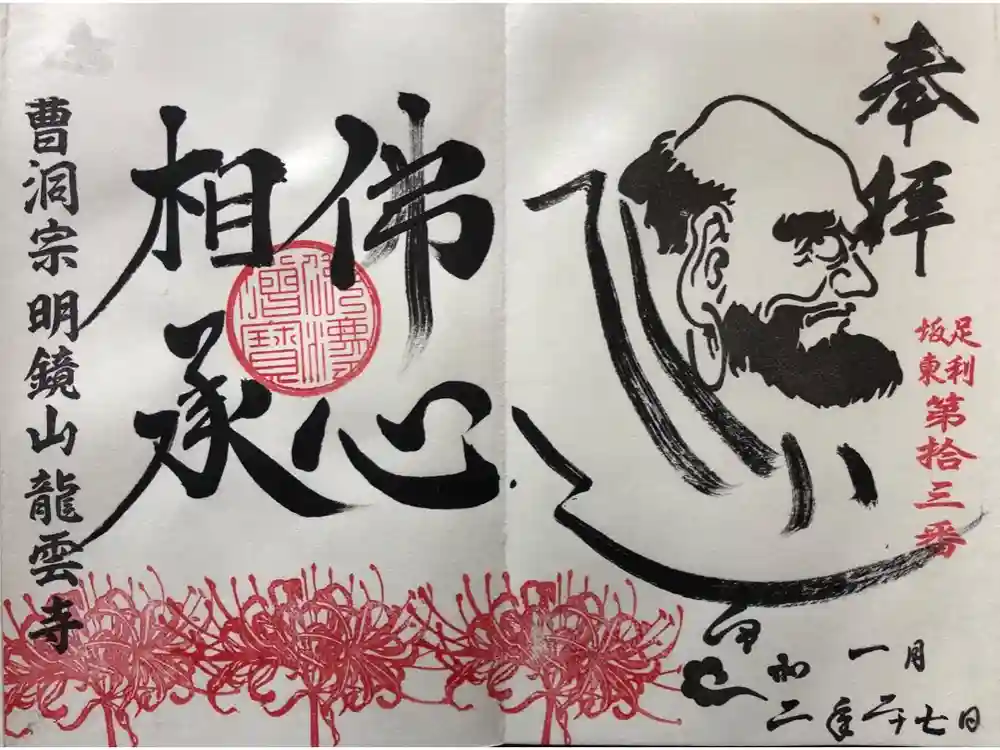 奉拝
足利
坂東
第拾三番
佛心
相承
曹洞宗明鏡山龍雲寺
和二年
一月二十七日